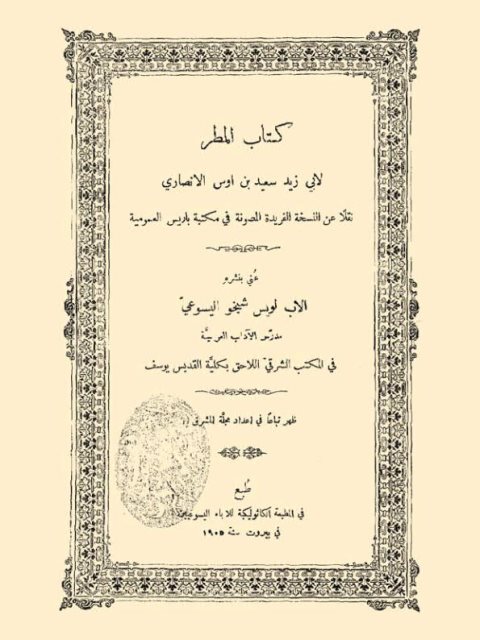 كتاب المطر
لابي زيد سعيد بن اوس الانصاري
نقلًا عن النسخة الفريدة المصونة في مكتبة باريس العمومية
عُني بنشرهِ
الاب لويس شيخو اليسوعيّ
مدرّس الآداب العربيّة
في المكتب الشرقيّ اللاحق بكليّة القديس يوسف
ظهر تباعًا في اعداد مجلّة المشرق
طُبع
في المطبعة الكاثوليكية للاباء اليسوعيين
في بيروت سنة ١٩٠٥